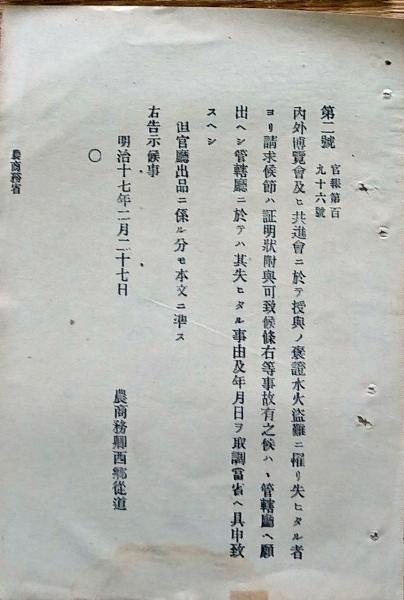 第二號
官報第百
九十六號
內外博覽會及ヒ共進會ニ於テ授與ノ褒證水火盜難ニ罹リ失ヒタル者
ヨリ請求候節ハ証明狀附與可致候條右等事故有之候ハヽ管轄廳ヘ願
出ヘシ管轄廳ニ於テハ其失ヒタル事由及年月日ヲ取調當省ヘ具申致
スヘシ
但官廳出品ニ係ル分モ本文ニ準ス
右告示候事
明治十七年二月二十七日
農商務卿西鄕從道
〇
農商務省